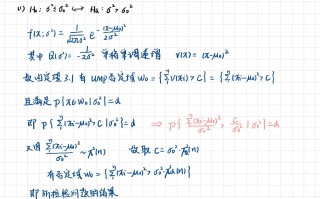 (1) H₀: σ² ≤ σ₀² ⟷ Hₐ: σ² > σ₀²
f(x;σ²) = 1/√(2πσ²) e^{-(x-μ₀)²/2σ²}
其中 Q(σ²) = -1/2σ² 单格单调递增 V(x) = (x-μ₀)²
故由定理3.1 有UMP否定域 W₀ = {Σⁿ V(xᵢ) > C} = {Σⁿ(xᵢ-μ₀)² > C}
且满足 P{x∈W₀|σ₀²} = α
即 P{Σⁿ(xᵢ-μ₀)² > C|σ₀²} = α ⇒ P{Σⁿ(xᵢ-μ₀)²/σ₀², C/σ₀² |σ₀²} = α
又有 Σⁿ(xᵢ-μ₀)²/σ₀² ~ χ²(n) 故取 C = σ₀² χ²(n)
有否定域 W₀ = {Σⁿ(xᵢ-μ₀)² > σ₀² χ²α(n)}
即所检验问题的结果